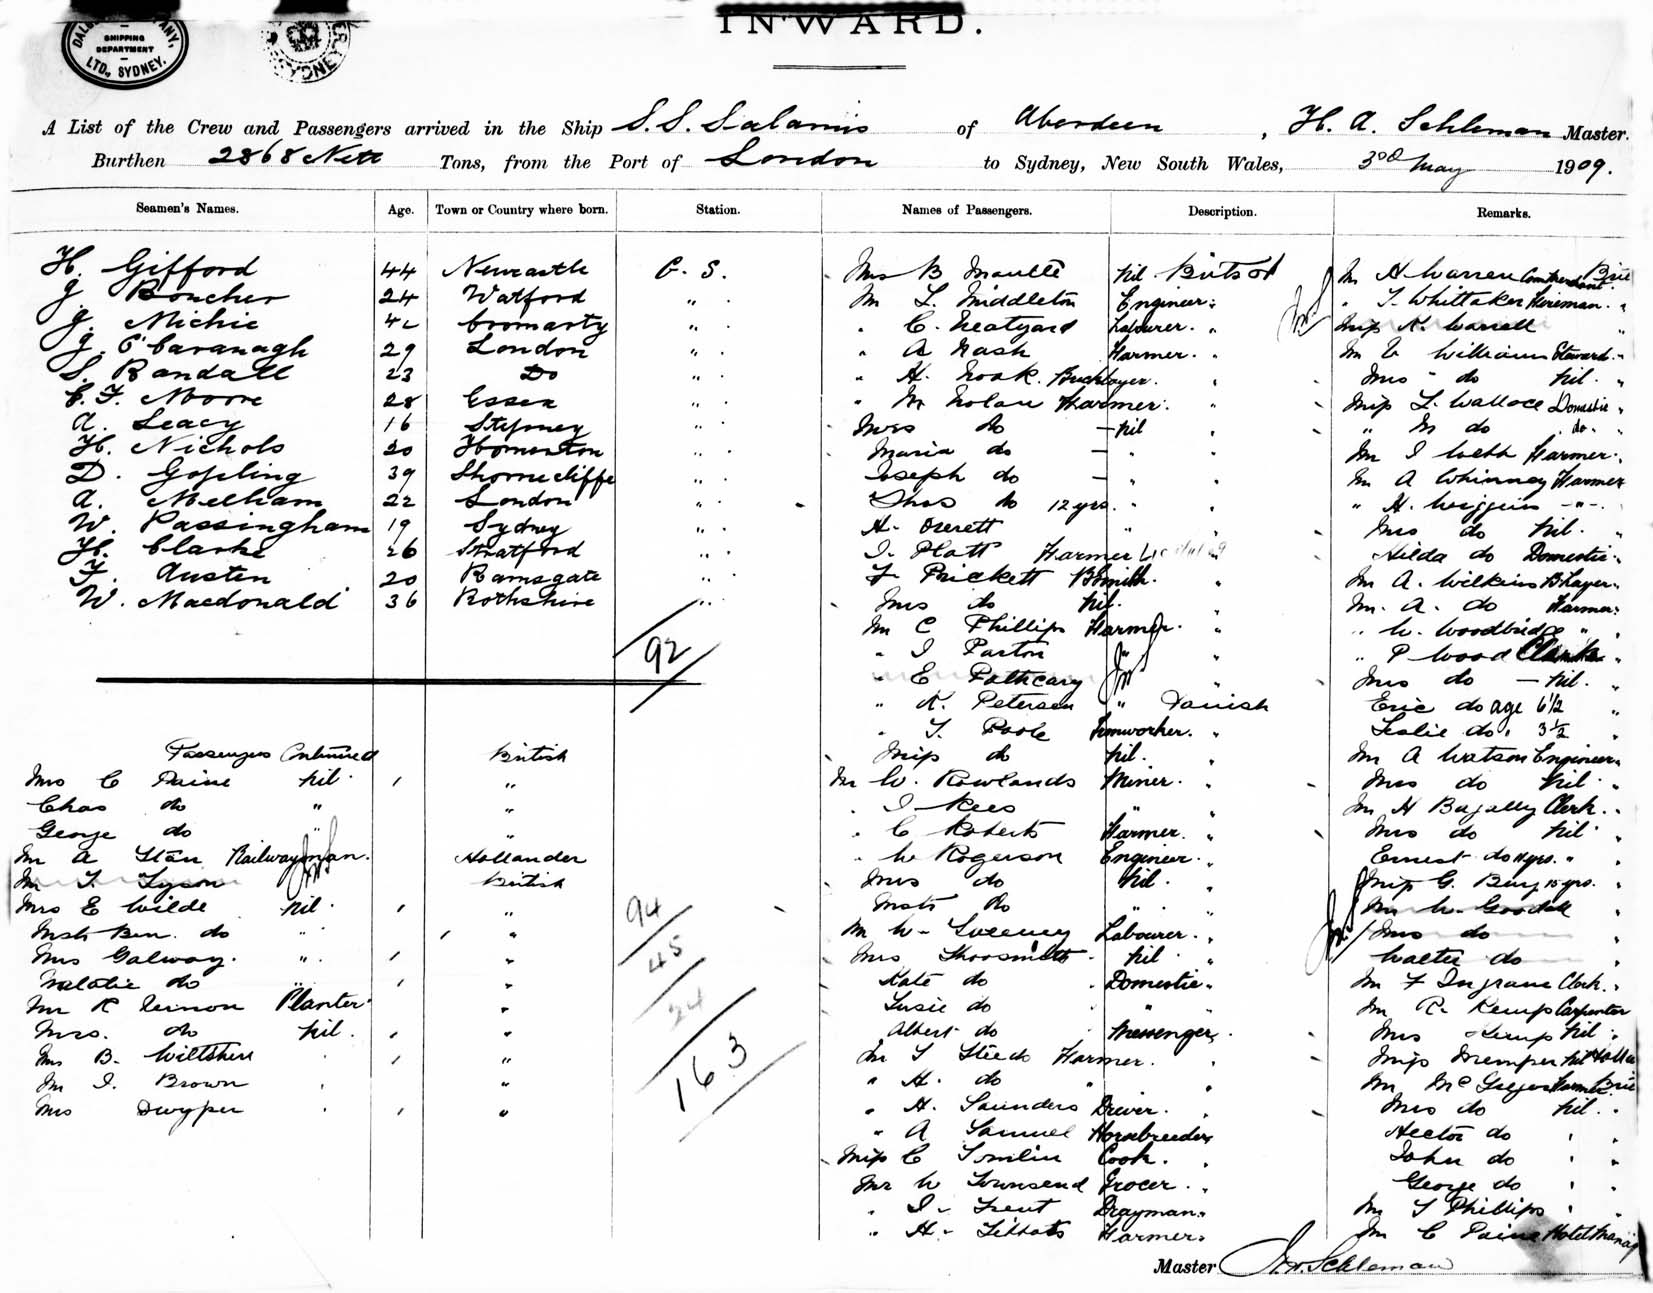 SHIPPING
DEPARTMENT
LTD., SYDNEY.
SYDNEY
INWARD.
A List of the Crew and Passengers arrived in the Ship S.S. Salamis of Aberdeen, H. A. Schleman Master.
Burthen 2868 Nett Tons, from the Port of London to Sydney, New South Wales, 3rd May 1909.
Seamen's Names. Age. Town or Country where born. Station. Names of Passengers. Description. Remarks.
H. Gifford 44 Newcastle
J. Boucher 24 Watford " "
J. Michie Cromarty " "
J. O'Cavanagh 29 London " "
S. Randall 23 Do " "
C. F. Moore 28 Essex " "
A. Leacy 16 Stepney " "
H. Nichols 20 Homerton " "
D. Gopling 39 Shorncliffe " "
A. Melham 22 London " "
W. Passingham 19 Sydney " "
H. Clarke 26 Stratford " "
F. Austen 20 Ramsgate " "
W. Macdonald 36 Rothshire " "
92
Passengers Continued British
Mrs C Paine Nil "
Chas do " "
George do " "
Mr A Stan Railwayman. Hollander
Mr T. Tyson British
Mrs E Wilde Nil "
Mstr Ben. do " "
Mrs Galway. " "
Natalie do " "
Mr R Vernon Planter "
Mrs. do Nil. "
Mrs B. Wiltshire "
Mr J. Brown "
Mrs Dwyper "
94
45
24
163
Mrs B Maulte Nil British
Mr L. Middleton Engineer "
" C. Neatgard Labourer. "
" A Nash Farmer. "
" H. Nook Bricklayer. "
" M Nolan Farmer. "
Mrs do Nil "
Maria do " "
Joseph do " "
Thos do 12 yrs. "
H. Everett " "
J. Platt Farmer
F Prickett BSmith. "
Mrs do Nil. "
Mr C Phillips Farmer. "
" J Paxton " "
" E Pothcary "
" K. Petersen " Danish
" T. Poole Ironworker. "
Miss do Nil. "
Mr W. Rowlands Miner. "
" J Rees " "
" C Roberts Farmer. "
" W Rogerson Engineer. "
Mrs do Nil. "
Mstr do " "
Mr W. Sweeney Labourer. "
Mrs Shoosmith Nil "
Kate do Domestic "
Susie do " "
Albert do Messenger "
Mr T Steeds Farmer. "
" H. do " "
" H. Saunders Driver. "
" A Samuel Horsebreeder "
Miss C Tomlin Cook. "
Mr W Townsend Grocer. "
" J. Trent Drayman "
" H. Tibbots Farmer "
Mr H Warren
" T. Whittaker Fireman. "
Miss K. Warrell "
Mr V Williams Steward. "
Mrs " do Nil. "
Miss L. Wallace Domestic "
" M do do. "
Mr J Webb Farmer. "
Mr A Whinney Farmer
" H. Wiggins - " -
Mrs do Nil. "
Hilda do Domestic "
Mr A. Wilkins BLayer "
Mr. A. do Farmer "
" W. Woodbridge " "
" P Wood Clerk "
Mrs do Nil. "
Eric do age 6 1/2 "
Leslie do. 3 1/2 "
Mr A Watson Engineer "
Mrs do Nil. "
Mr H Bagally Clerk. "
Mrs do Nil "
Ernest do 11 yrs. " "
Miss G. Bury 15 yrs. "
Mr W. Goodall "
Mrs do "
Walter do "
Mr F Ingrane Clerk. "
Mr R. Kemp Carpenter
Mrs Kemp Nil "
Miss Nil
Mr McGregor Farmer
Mrs do Nil. "
Hector do " "
John do " "
George do " "
Mr T Phillips " "
Mr C Paine
Master H. A. Schleman